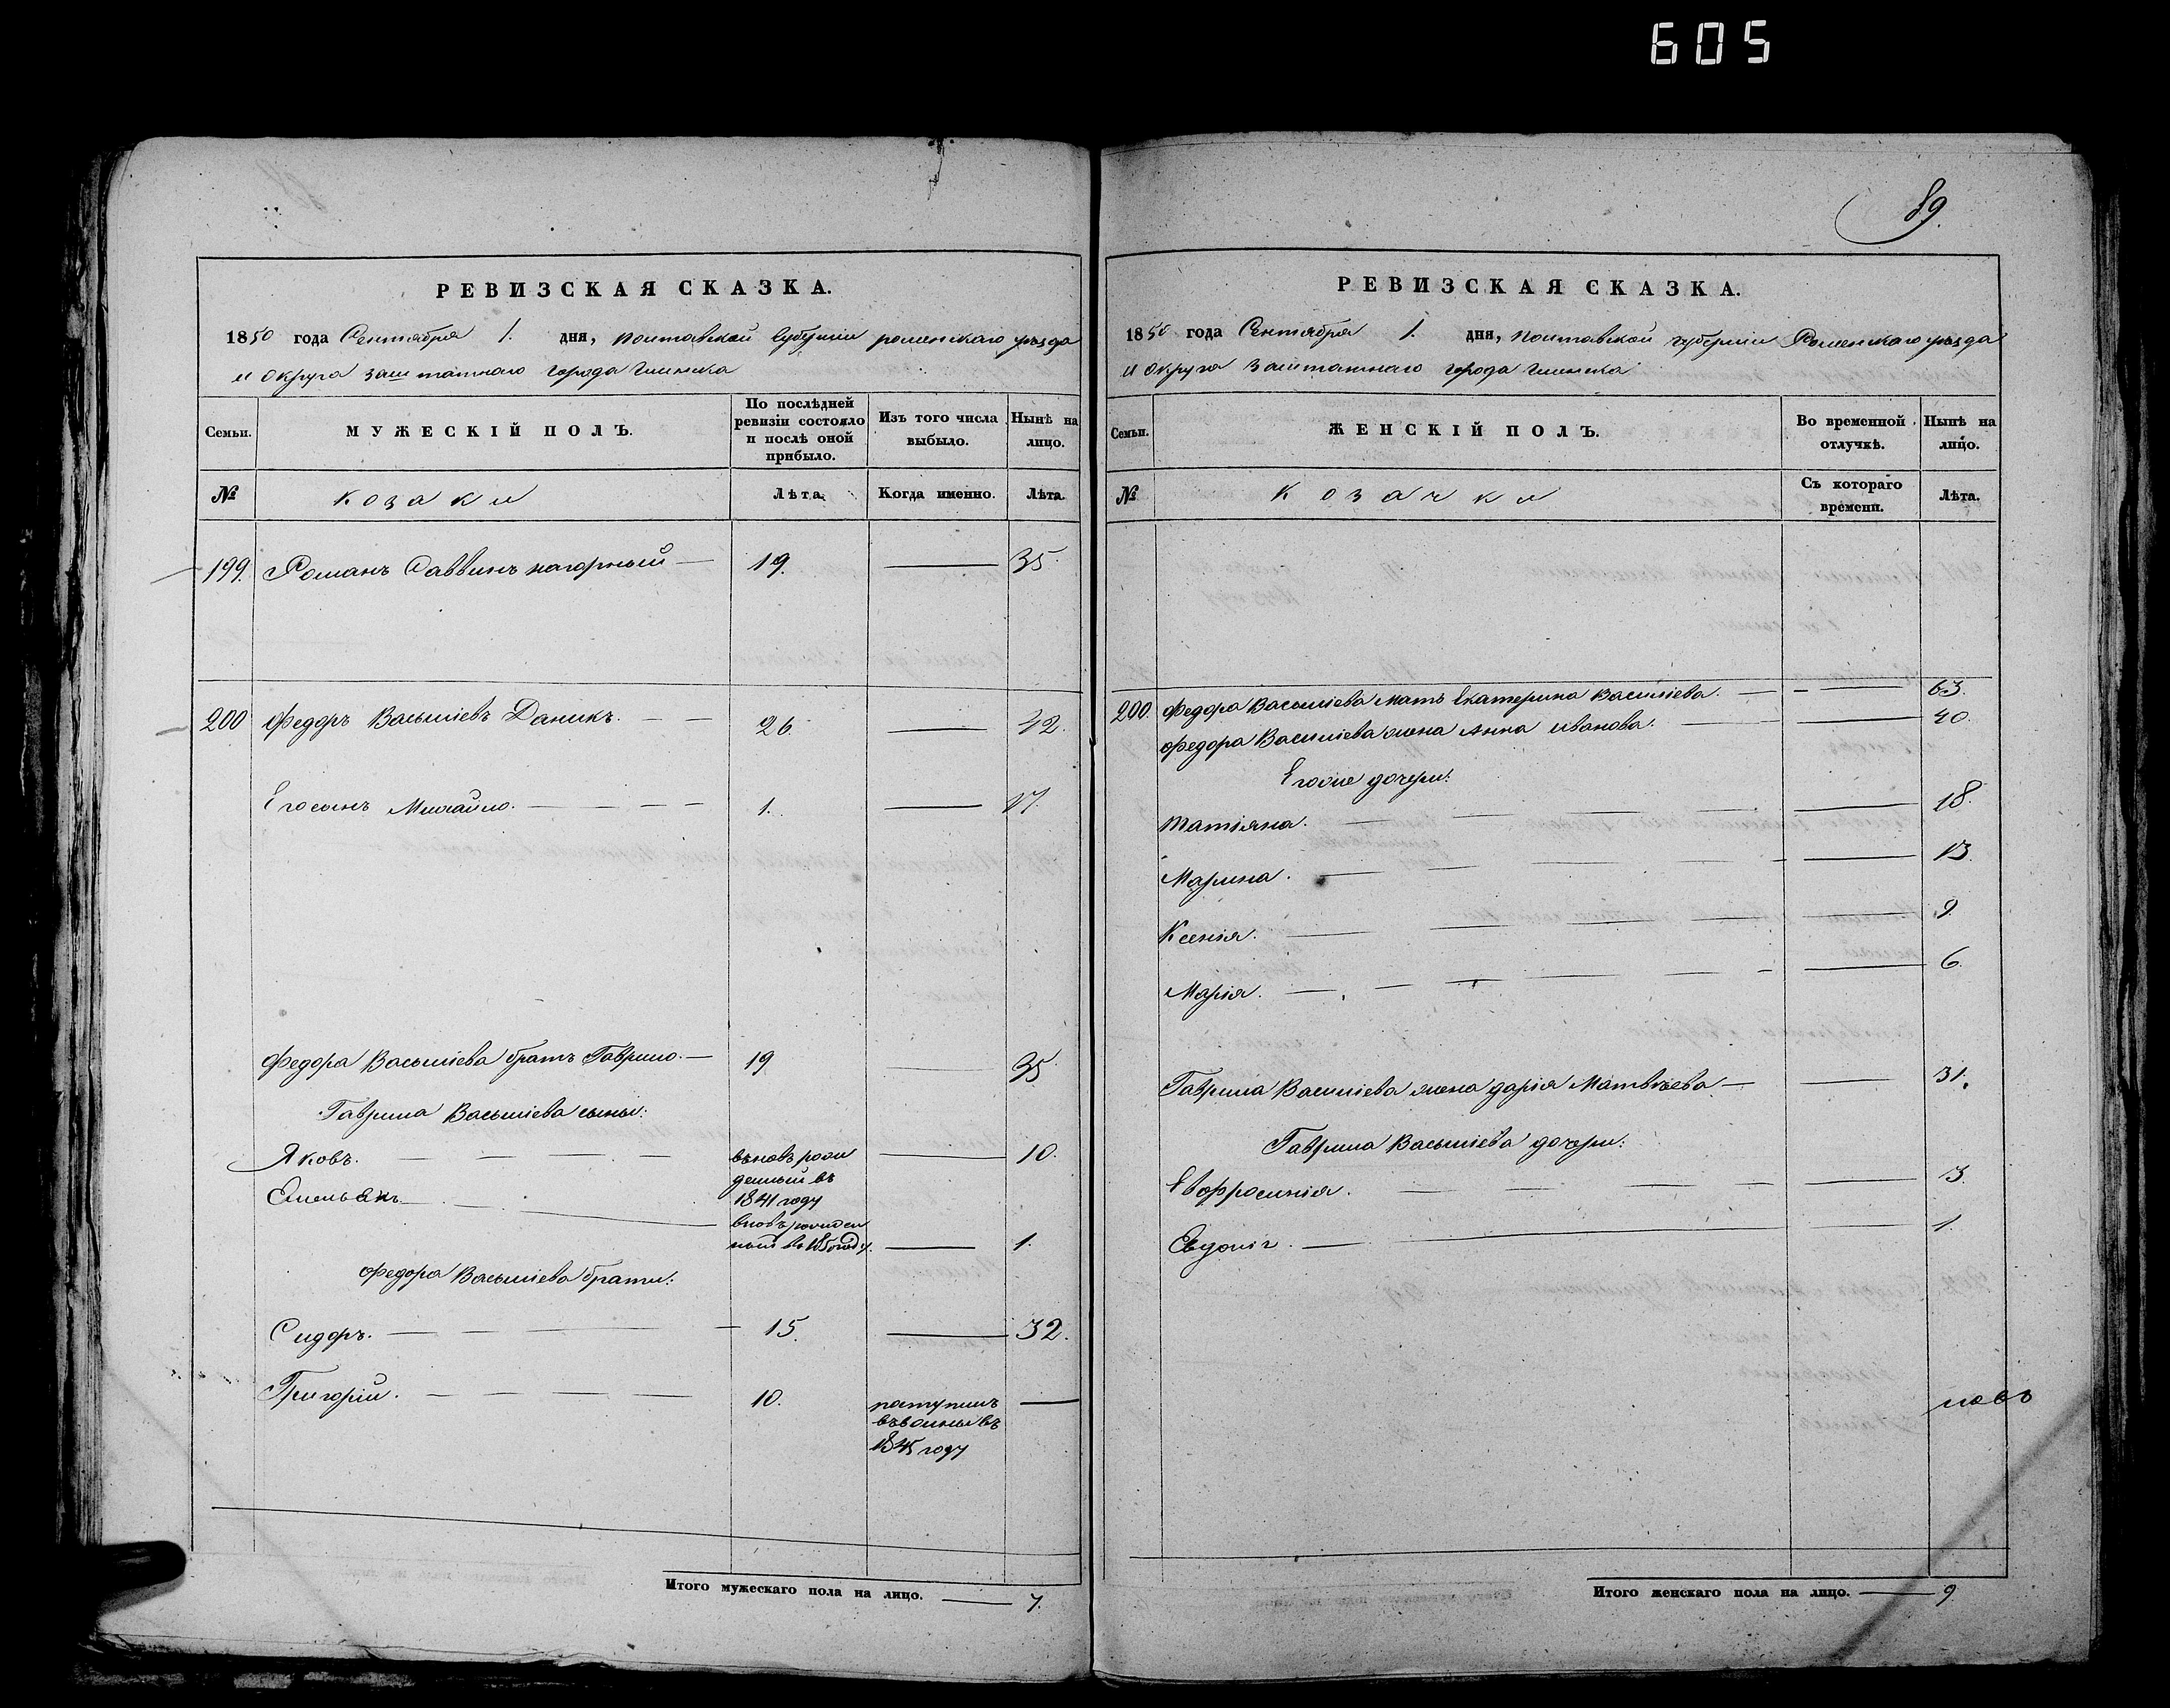 605
89.
РЕВИЗСКАЯ СКАЗКА.
1850 года Сентября 1. дня, полтавской Губернии роменскаго уѣзда
и округа заштатнаго города Глинска
Семьи.
МУЖЕСКІЙ ПОЛЪ.
По послѣдней
ревизіи состояло
и послѣ оной
прибыло.
Изъ того числа
выбыло.
Нынѣ на
лицо.
№
козаки
Лѣта.
Когда именно.
Лѣта.
199. Романъ Саввинъ нагорный — 19. — 35.
200 Федоръ Васылiевъ Даникъ. — — 26. — 42.
Его сынъ Михайло. — — — — 1. — 17.
Федора Васылiева братъ Гаврило. — 19 — 35
Гаврила Васылiева сыны:
Яковъ. — — — — вновь рож
денный въ
1841 году — 10.
Емельянъ — вновь рожден
ный въ 1850 году. — 1.
Федора Васылiева браты:
Сидоръ. — — — — 15. — 32.
Григорій. — — — — 10. поступилъ —
въ воины въ
1845 году
Итого мужескаго пола на лицо. — 7.
РЕВИЗСКАЯ СКАЗКА.
1850 года Сентября 1. дня, полтавской губерніи Роменскаго уѣзда
и округа заштатнаго города Глинска
Семьи.
ЖЕНСКІЙ ПОЛЪ.
Во временной
отлучкѣ.
Нынѣ на
лицо.
№
козачки
Съ котораго
времени.
Лѣта.
200. Федора Васылiева мать Екатерина Василiева. — — — 63.
Федора Василiева жена Анна Иванова. — — 40.
Его же дочери:
Татіяна. — — — — — 18.
Марина. — — — — — 13.
Ксенія. — — — — — 9.
Марія. — — — — — 6.
Гаврила Василiева жена дарія Матвѣева — — 31.
Гаврила Васылiева дочери:
Евфросинія. — — — — — 3.
Евдокія. — — — 1.
Итого женскаго пола на лицо. — 9